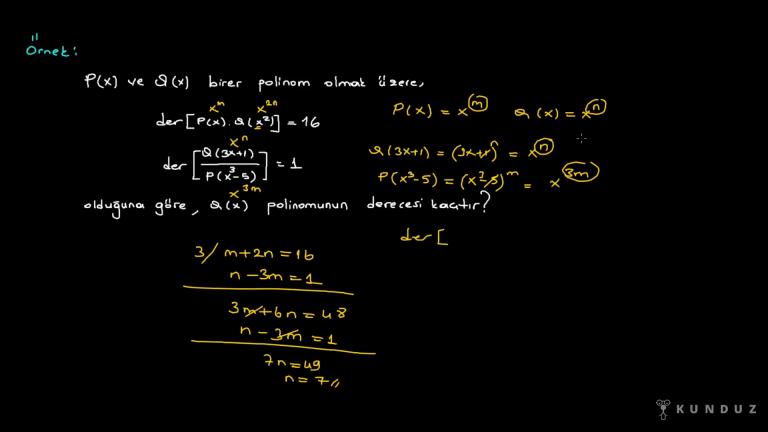 Örnek:
P(x) ve Q(x) birer polinom olmak üzere,
x^m x^2n
der[P(x).Q(x²)] = 16
P(x) = x^m Q(x) = x^n
x^n
der[Q(3x+1)/P(x³-5)] = 1
x^3m
Q(3x+1) = (3x+1)^n = x^n
P(x³-5) = (x³-5)^m = x^3m
olduğuna göre, Q(x) polinomunun derecesi kaçtır?
der[
3/ m+2n=16
n-3m=1
3m+6n=48
n-3m=1
7n=49
n=7//
KUNDUZ